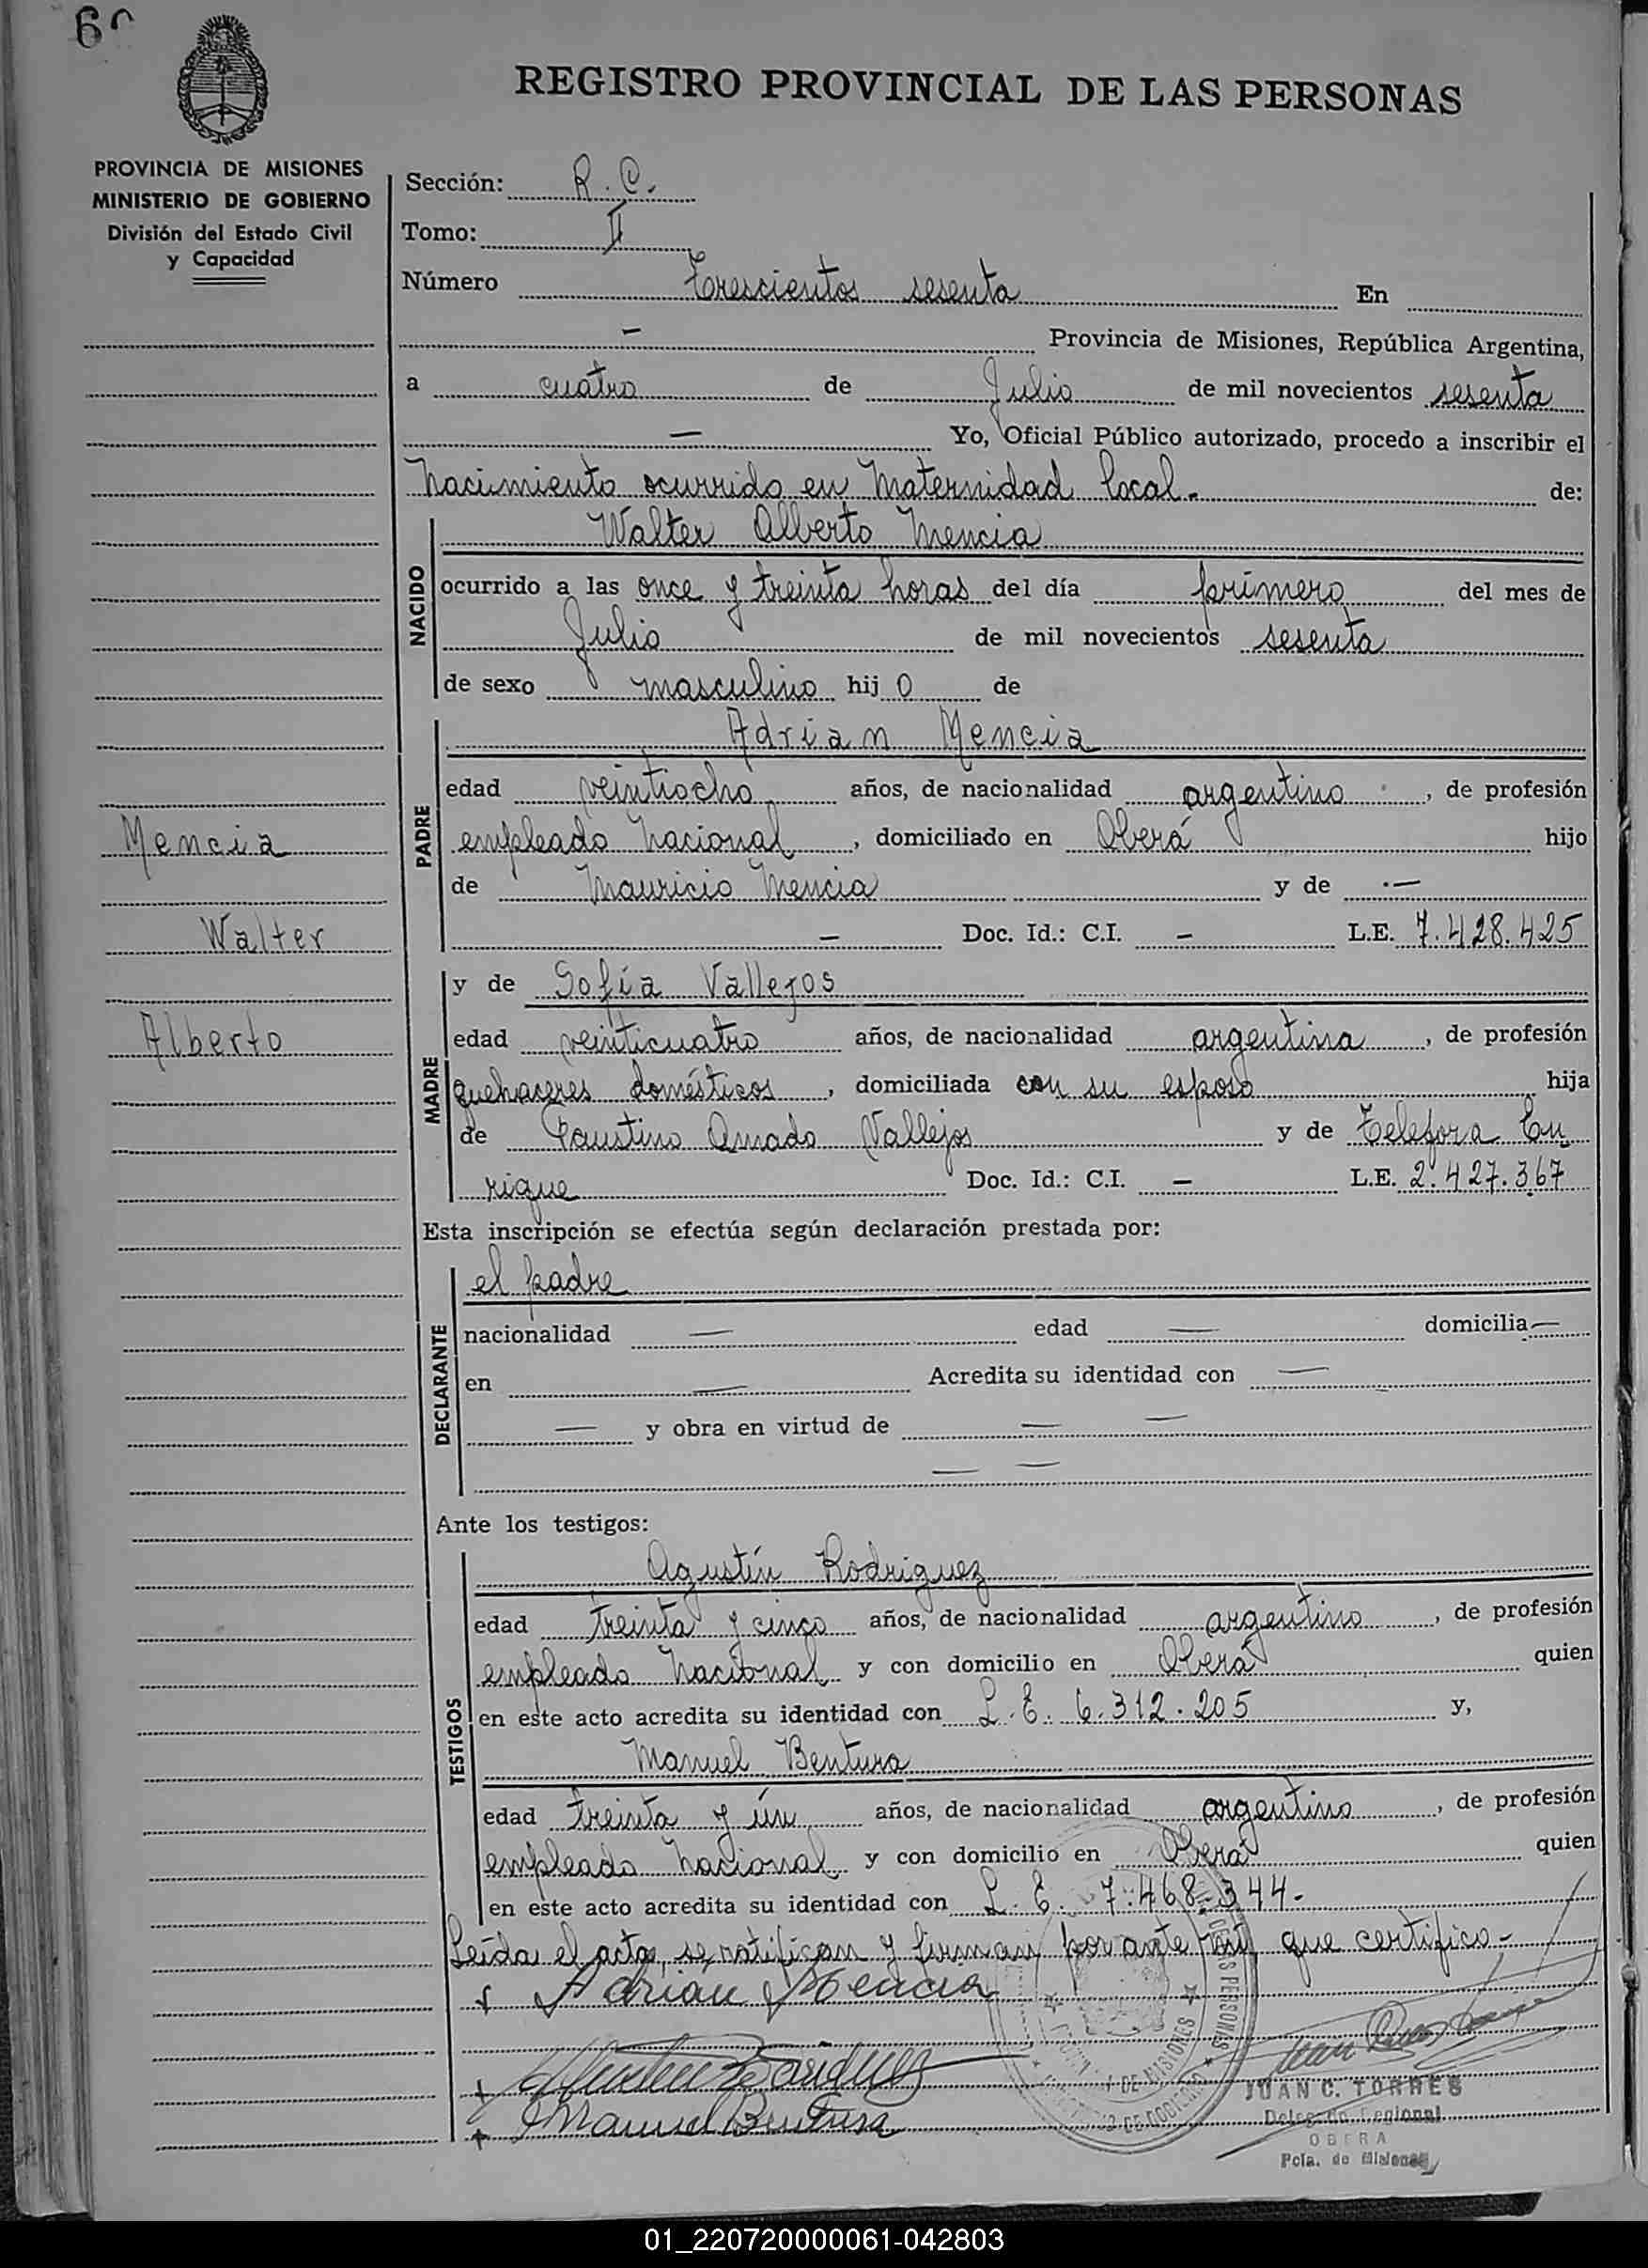 REGISTRO PROVINCIAL DE LAS PERSONAS
PROVINCIA DE MISIONES
MINISTERIO DE GOBIERNO
División del Estado Civil
y Capacidad
Sección: R. C.
Tomo: II
Número Trescientos sesenta En
— Provincia de Misiones, República Argentina,
a cuatro de Julio de mil novecientos sesenta
— Yo, Oficial Público autorizado, procedo a inscribir el
Nacimiento ocurrido en Maternidad local.- de:
NACIDO
Walter Alberto Mencia
ocurrido a las once y treinta horas del día primero del mes de
Julio de mil novecientos sesenta
de sexo masculino hij o de
PADRE
Adrian Mencia
edad veintiocho años, de nacionalidad argentino, de profesión
empleado Nacional, domiciliado en Oberá hijo
de Mauricio Mencia y de —
— Doc. Id.: C.I. — L.E. 7.428.425
Mencia
Walter
Alberto
MADRE
y de Sofía Vallejos
edad veinticuatro años, de nacionalidad argentina, de profesión
quehaceres domésticos, domiciliada con su esposo hija
de Faustino Amado Vallejos y de Telefora En
rique Doc. Id.: C.I. — L.E. 2.427.367
Esta inscripción se efectúa según declaración prestada por:
DECLARANTE
el padre
nacionalidad — edad — domicilia —
en — Acredita su identidad con —
— y obra en virtud de — —
— —
Ante los testigos:
TESTIGOS
Agustín Rodriguez
edad treinta y cinco años, de nacionalidad argentino, de profesión
empleado Nacional y con domicilio en Oberá quien
en este acto acredita su identidad con L. E. 6.312.205 y,
Manuel Bentura
edad treinta y ún años, de nacionalidad argentino, de profesión
empleado Nacional y con domicilio en Oberá quien
en este acto acredita su identidad con L. E. 7.468.344.-
Leída el acta, se ratifican y firman por ante mí que certifico.-
Adrián Mencia
Manuel Bentura
JUAN C. TORRES
Delegado Regional
OBERA
Pcia. de Misiones
01_220720000061-042803